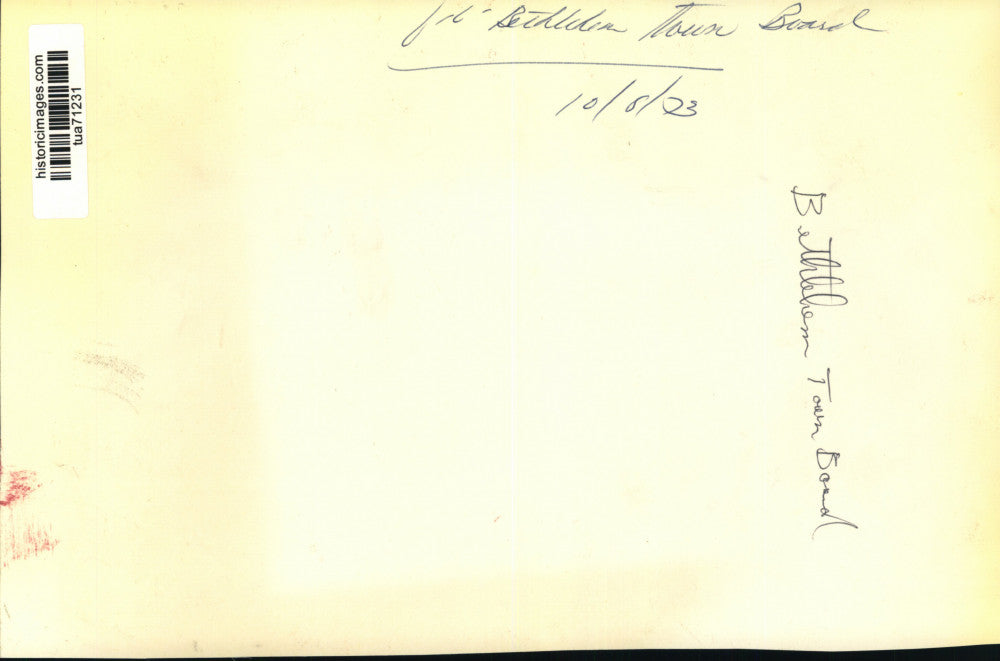 file Bethlehem Town Board
10/8/73
historicimages.com
tua71231
Bethlehem Town Board